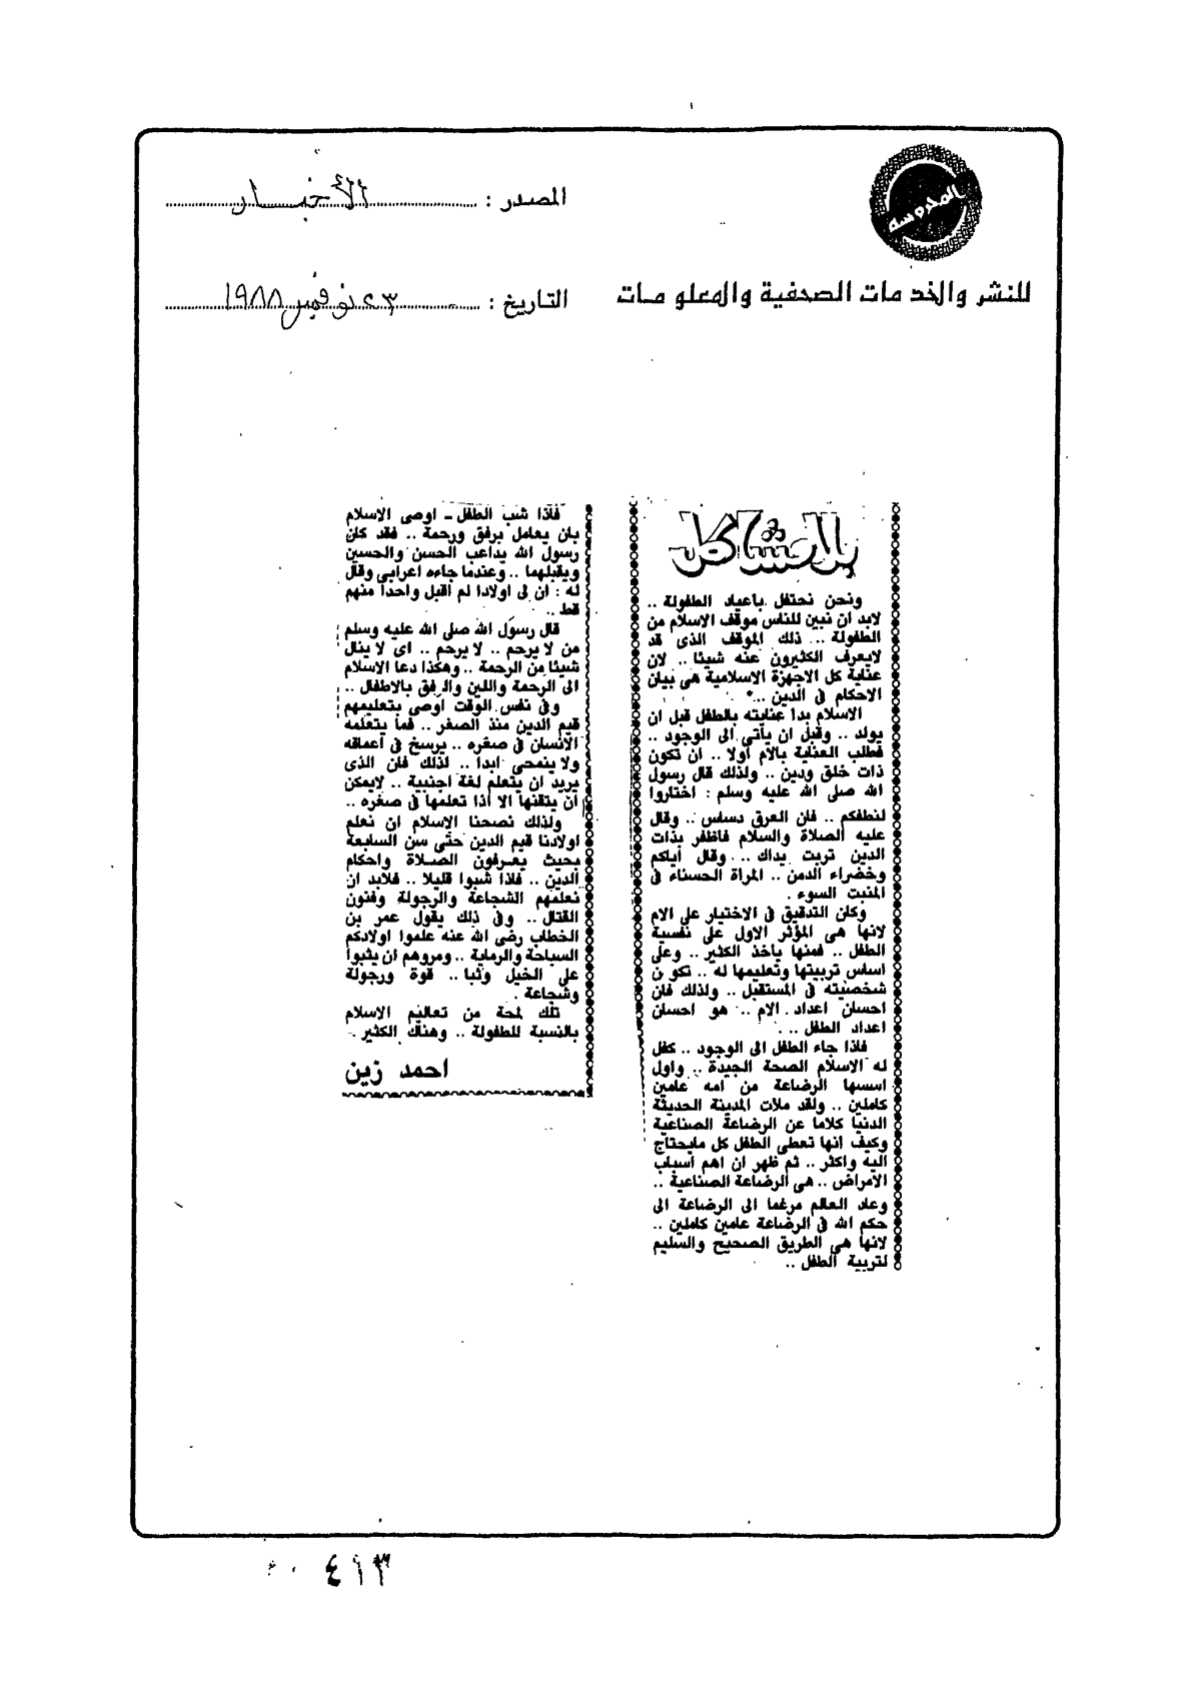 المحروسة
للنشر والخدمات الصحفية والمعلومات
المصدر : الأخبار
التاريخ : ٢٣ نوفمبر ١٩٨٨
بلا مشاكل
ونحن نحتفل باعياد الطفولة ..
لابد ان نبين للناس موقف الاسلام من
الطفولة .. ذلك الموقف الذى قد
لايعرف الكثيرون عنه شيئا .. لان
عناية كل الاجهزة الاسلامية هى بيان
الاحكام فى الدين ..
الاسلام بدا عنايته بالطفل قبل ان
يولد .. وقبل ان يأتى الى الوجود ..
فطلب العناية بالام أولا .. ان تكون
ذات خلق ودين .. ولذلك قال رسول
الله صلى الله عليه وسلم : اختاروا
لنطفكم .. فان العرق دساس .. وقال
عليه الصلاة والسلام فاظفر بذات
الدين تربت يداك .. وقال أياكم
وخضراء الدمن .. المراة الحسناء فى
المنبت السوء .
وكان التدقيق فى الاختيار على الام
لانها هى المؤثر الاول على نفسية
الطفل .. فمنها ياخذ الكثير .. وعلى
اساس تربيتها وتعليمها له .. تكون
شخصيته فى المستقبل .. ولذلك فان
احسان اعداد الام .. هو احسان
اعداد الطفل ..
فاذا جاء الطفل الى الوجود .. كفل
له الاسلام الصحة الجيدة .. واول
اسسها الرضاعة من امه عامين
كاملين .. ولقد ملات المدينة الحديثة
الدنيا كلاما عن الرضاعة الصناعية
وكيف انها تعطى الطفل كل مايحتاج
اليه واكثر .. ثم ظهر ان اهم اسباب
الامراض .. هى الرضاعة الصناعية ..
وعاد العالم مرغما الى الرضاعة الى
حكم الله فى الرضاعة عامين كاملين ..
لانها هى الطريق الصحيح والسليم
لتربية الطفل ..
فاذا شب الطفل ـ اوصى الاسلام
بان يعامل برفق ورحمة .. فقد كان
رسول الله يداعب الحسن والحسين
ويقبلهما .. وعندما جاءه اعرابى وقال
له : ان لى اولادا لم اقبل واحدا منهم
قط ..
قال رسول الله صلى الله عليه وسلم
من لا يرحم .. لا يرحم .. اى لا ينال
شيئا من الرحمة .. وهكذا دعا الاسلام
الى الرحمة واللين والرفق بالاطفال ..
وفى نفس الوقت أوصى بتعليمهم
قيم الدين منذ الصغر .. فما يتعلمه
الانسان فى صغره .. يرسخ فى أعماقه
ولا ينمحى ابدا .. لذلك فان الذى
يريد ان يتعلم لغة اجنبية .. لايمكن
أن يتقنها الا اذا تعلمها فى صغره ..
ولذلك نصحنا الاسلام ان نعلم
اولادنا قيم الدين حتى سن السابعة
بحيث يعرفون الصلاة واحكام
الدين .. فاذا شبوا قليلا .. فلابد ان
نعلمهم الشجاعة والرجولة وفنون
القتال .. وفى ذلك يقول عمر بن
الخطاب رضى الله عنه علموا اولادكم
السباحة والرماية .. ومروهم ان يثبوا
على الخيل وثبا .. قوة ورجولة
وشجاعة .
تلك لمحة من تعاليم الاسلام
بالنسبة للطفولة .. وهناك الكثير .
احمد زين
٤١٣